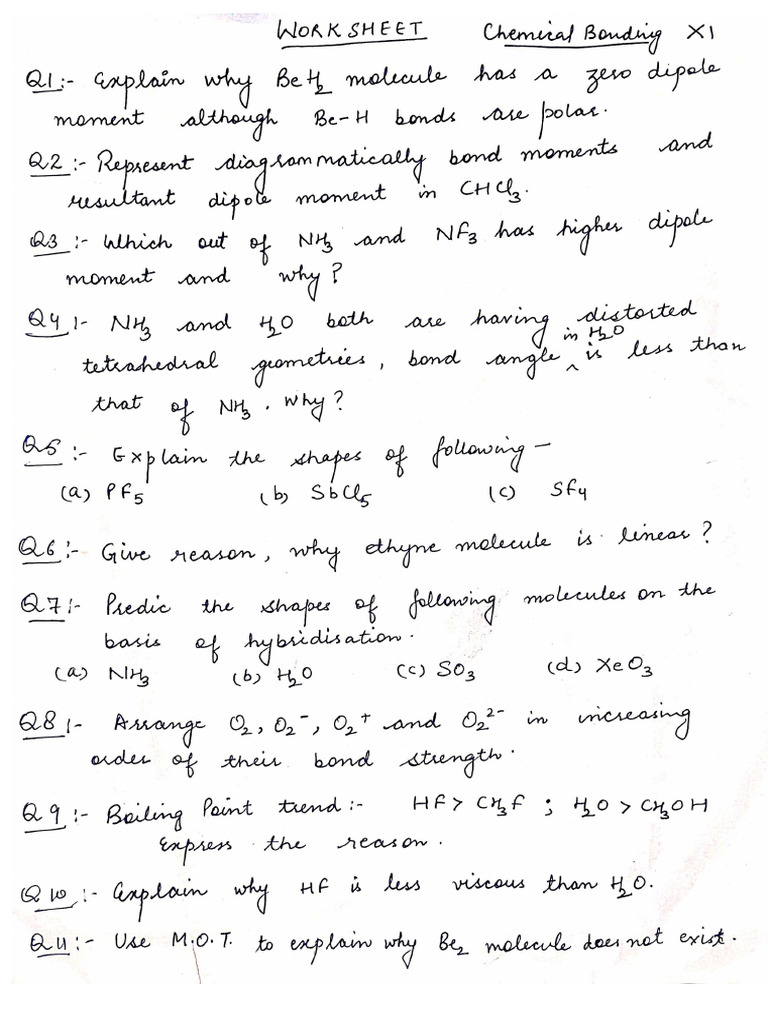 WORKSHEET Chemical Bonding XI
Q1:- Explain why BeH₂ molecule has a zero dipole
moment although Be-H bonds are polar.
Q2:- Represent diagrammatically bond moments and
resultant dipole moment in CHCl₃.
Q3:- Which out of NH₃ and NF₃ has higher dipole
moment and why?
Q4:- NH₃ and H₂O both are having distorted
tetrahedral geometries, bond angle in H₂O is less than
that of NH₃. Why?
Q5:- Explain the shapes of following –
(a) PF₅ (b) SbCl₅ (c) SF₄
Q6:- Give reason, why ethyne molecule is linear?
Q7:- Predic the shapes of following molecules on the
basis of hybridisation.
(a) NH₃ (b) H₂O (c) SO₃ (d) XeO₃
Q8:- Arrange O₂, O₂⁻, O₂⁺ and O₂²⁻ in increasing
order of their bond strength.
Q9:- Boiling Point trend:- HF > CH₃F ; H₂O > CH₃OH
Express the reason.
Q10:- Explain why HF is less viscous than H₂O.
Q11:- Use M.O.T. to explain why Be₂ molecule does not exist.